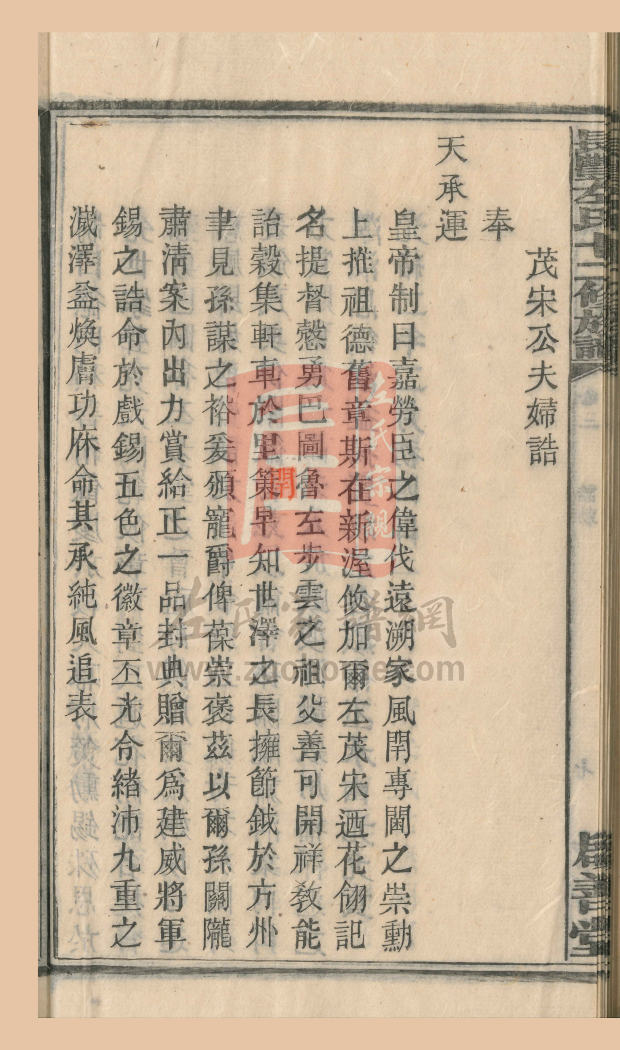 茂宋公夫婦誥
奉
天承運
皇帝制曰嘉勞臣之偉伐遠溯家風閈專閫之崇勳
上推祖德舊章斯在新渥攸加爾左茂宋迺花翎記
名提督慤勇巴圖魯左步雲之祖父善可開祥敎能
詒榖集軒車於里第早知世澤之長擁節鉞於方州
聿見孫謀之裕爰頒寵爵俾葆崇褒茲以爾孫關隴
肅清案內出力賞給正一品封典贈爾爲建威將軍
錫之誥命於戲錫五色之徽章丕光令緒沛九重之
濊澤益煥膚功庥命其承純風追表
長豐左氏十二修族譜
卷二
啟善堂
左氏宗親
左氏家譜網
www.zuohome.com